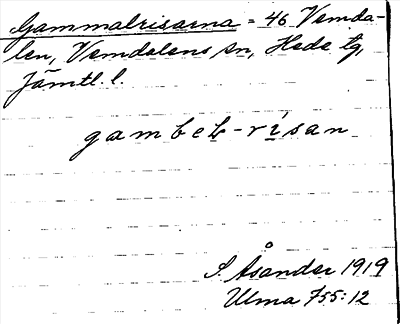 Gammalrisarna = 46 Vemda-
len, Vemdalens sn, Hede tg,
Jämtl. l.
gambeḷ-rìsan
S. Åsander 1919
Ulma 755:12